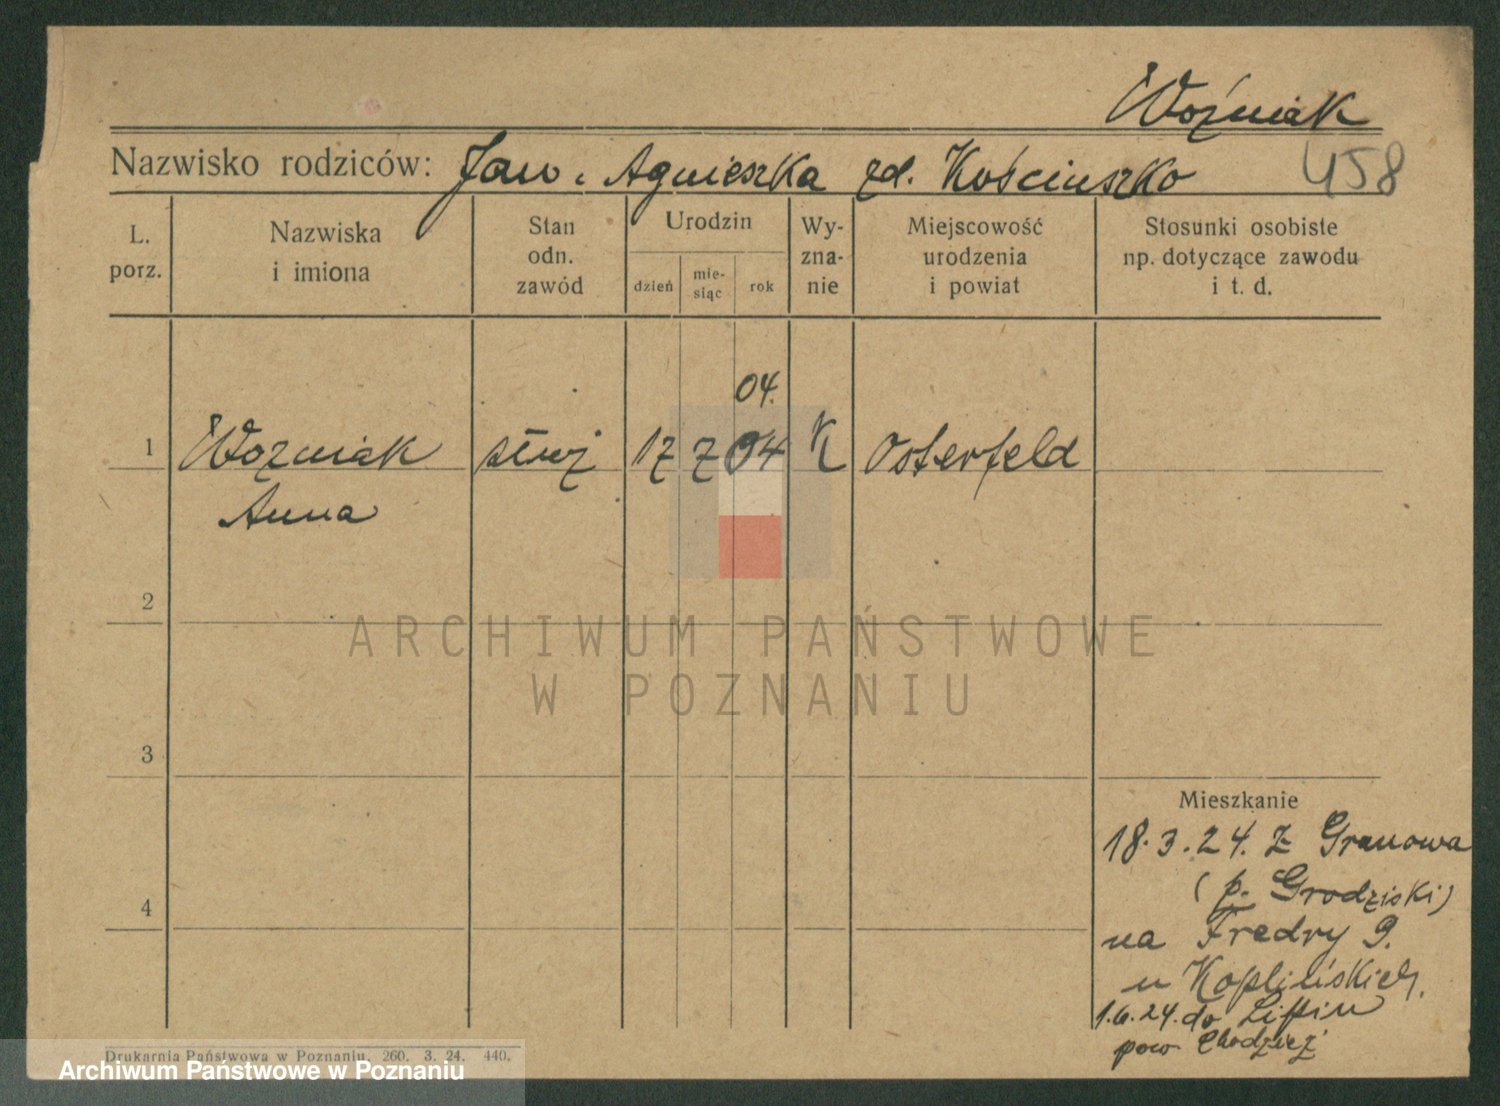 Woźniak
Nazwisko rodziców: Jan i Agnieszka zd. Kościuszko
458
L. porz.
Nazwiska i imiona
Stan odn. zawód
Urodzin
dzień
mie-siąc
rok
Wy-zna-nie
Miejscowość urodzenia i powiat
Stosunki osobiste np. dotyczące zawodu i t. d.
04.
1 Wozniak 17 7 04 K Osterfeld
Anna
2
ARCHIWUM PAŃSTWOWE
W POZNANIU
3
Mieszkanie
18.3.24. z Granowa
4
(p. Grodziski)
na Fredry 9.
u
1.6.24. do
pow Chodzież
Drukarnia Państwowa w Poznaniu. 260. 3. 24. 440.
Archiwum Państwowe w Poznaniu